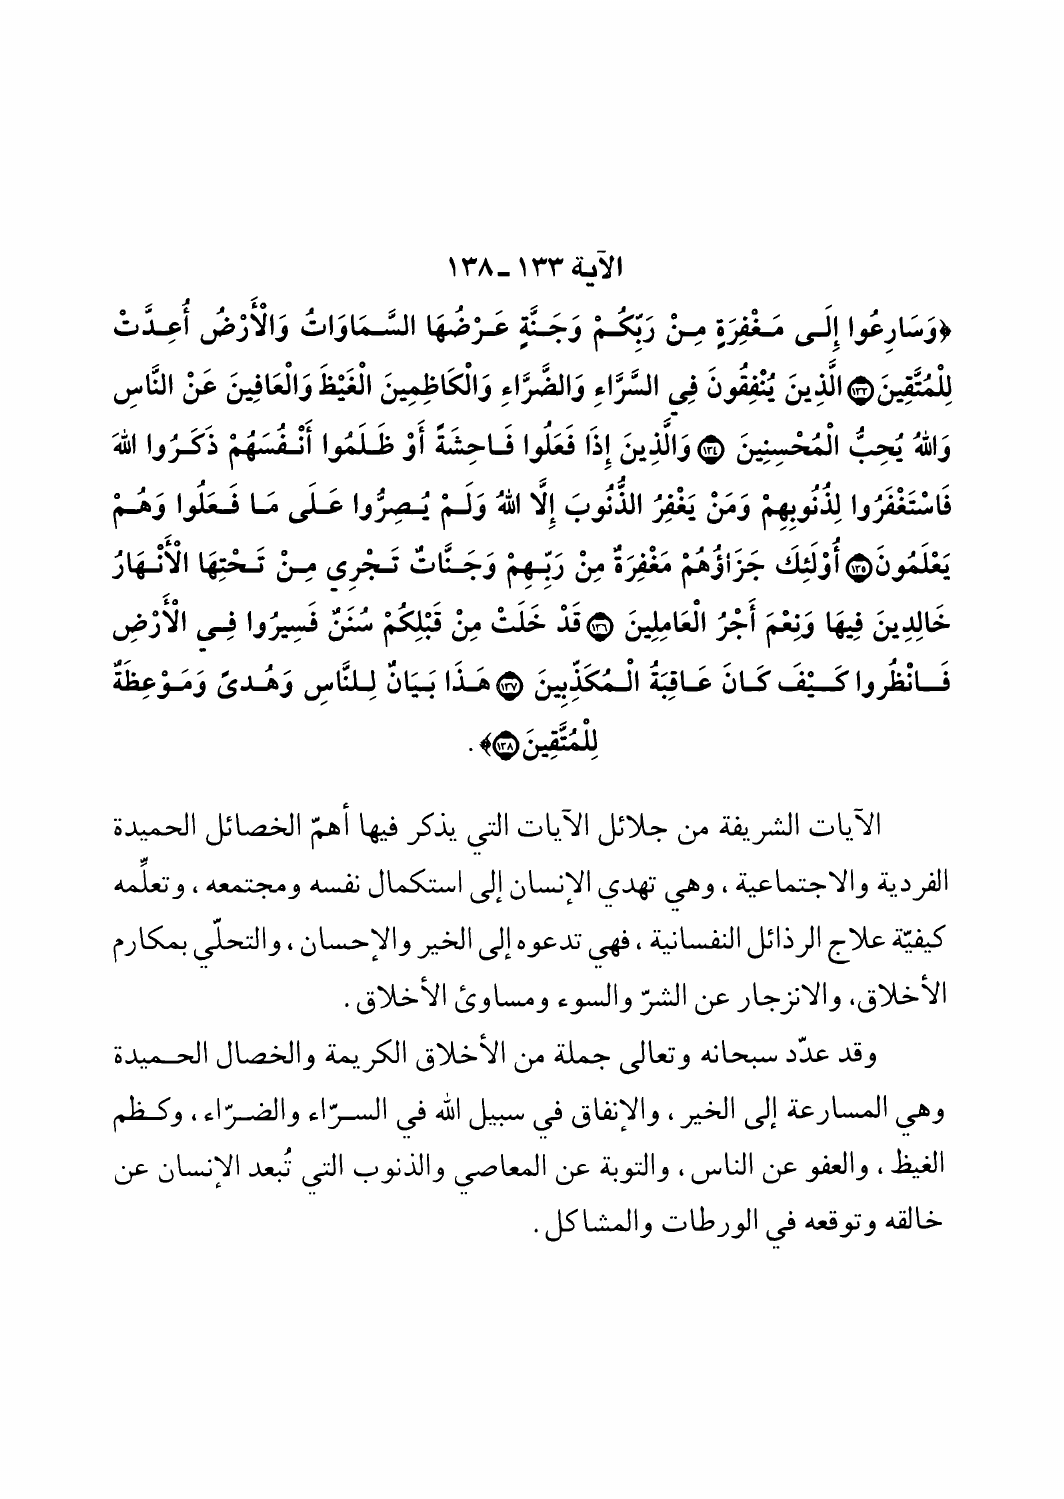 الآية ١٣٣ ـ ١٣٨
﴿وَسَارِعُوا إِلَى مَغْفِرَةٍ مِنْ رَبِّكُمْ وَجَنَّةٍ عَرْضُهَا السَّمَاوَاتُ وَالْأَرْضُ أُعِدَّتْ
لِلْمُتَّقِينَ ١٣٣ الَّذِينَ يُنْفِقُونَ فِي السَّرَّاءِ وَالضَّرَّاءِ وَالْكَاظِمِينَ الْغَيْظَ وَالْعَافِينَ عَنْ النَّاسِ
وَاللهُ يُحِبُّ الْمُحْسِنِينَ ١٣٤ وَالَّذِينَ إِذَا فَعَلُوا فَاحِشَةً أَوْ ظَلَمُوا أَنْفُسَهُمْ ذَكَرُوا اللهَ
فَاسْتَغْفَرُوا لِذُنُوبِهِمْ وَمَنْ يَغْفِرُ الذُّنُوبَ إِلَّا اللهُ وَلَمْ يُصِرُّوا عَلَى مَا فَعَلُوا وَهُمْ
يَعْلَمُونَ ١٣٥ أُوْلَئِكَ جَزَاؤُهُمْ مَغْفِرَةٌ مِنْ رَبِّهِمْ وَجَنَّاتٌ تَجْرِي مِنْ تَحْتِهَا الْأَنْهَارُ
خَالِدِينَ فِيهَا وَنِعْمَ أَجْرُ الْعَامِلِينَ ١٣٦ قَدْ خَلَتْ مِنْ قَبْلِكُمْ سُنَنٌ فَسِيرُوا فِي الْأَرْضِ
فَانْظُرُوا كَيْفَ كَانَ عَاقِبَةُ الْمُكَذِّبِينَ ١٣٧ هَذَا بَيَانٌ لِلنَّاسِ وَهُدىً وَمَوْعِظَةٌ
لِلْمُتَّقِينَ ١٣٨﴾ .
الآيات الشريفة من جلائل الآيات التي يذكر فيها أهمّ الخصائل الحميدة
الفردية والاجتماعية ، وهي تهدي الإنسان إلى استكمال نفسه ومجتمعه ، وتعلِّمه
كيفيّة علاج الرذائل النفسانية ، فهي تدعوه إلى الخير والإحسان ، والتحلّي بمكارم
الأخلاق، والانزجار عن الشرّ والسوء ومساوئ الأخلاق .
وقد عدّد سبحانه وتعالى جملة من الأخلاق الكريمة والخصال الحميدة
وهي المسارعة إلى الخير ، والإنفاق في سبيل الله في السرّاء والضرّاء ، وكظم
الغيظ ، والعفو عن الناس ، والتوبة عن المعاصي والذنوب التي تُبعد الإنسان عن
خالقه وتوقعه في الورطات والمشاكل .